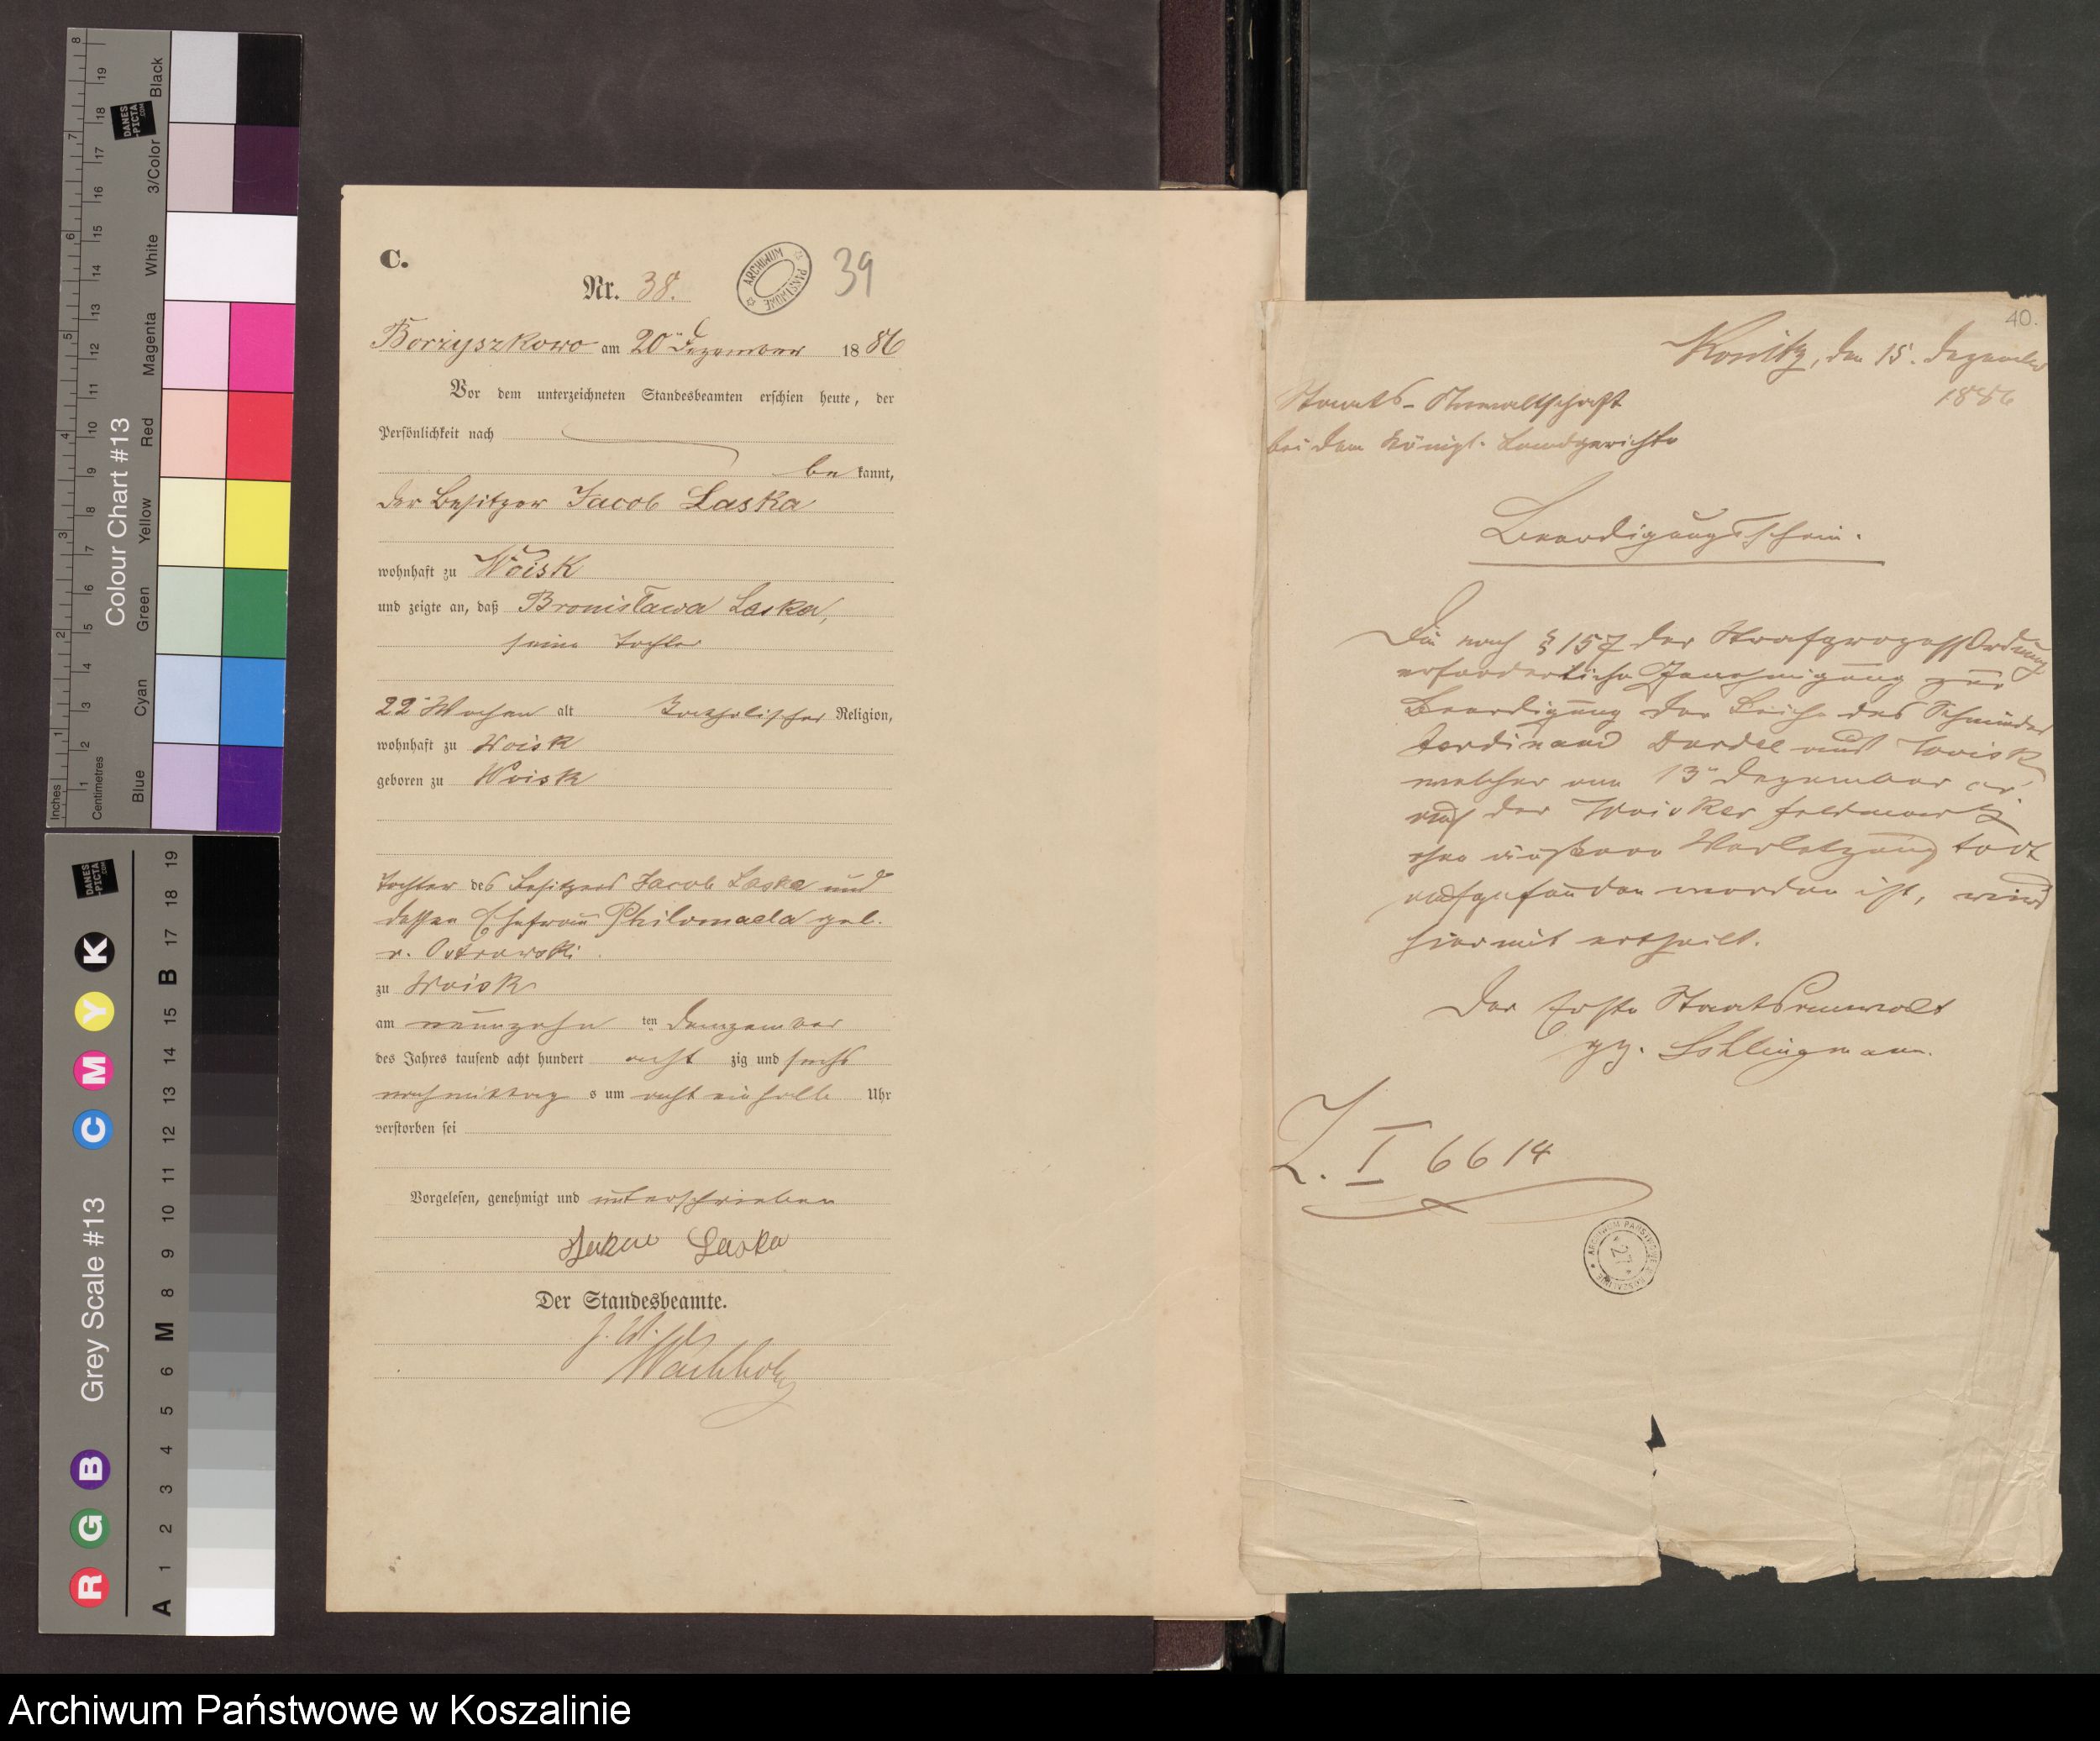 C.
Nr. 38.
ARCHIWUM PAŃSTWOWE
39
Borzyszkowo am 20ten Dezember 1886
Vor dem unterzeichneten Standesbeamten erschien heute, der
Persönlichkeit nach
bekannt,
der Besitzer Jacob Laska
wohnhaft zu Woisk
und zeigte an, daß Bronislawa Laska,
seine Tochter
22 Wochen alt katholischer Religion,
wohnhaft zu Woisk
geboren zu Woisk
Tochter des Besitzers Jacob Laska und
dessen Ehefrau Philomaela geb.
v. Ostrowski
zu Woisk
am neunzehn ten Dezember
des Jahres tausend acht hundert acht zig und sechs
nachmittag s um acht ein halb Uhr
verstorben sei
Vorgelesen, genehmigt und unterschrieben
Laska
Der Standesbeamte.
Wachholz
40.
Konitz, den 15. Dezember
1886
Staats-Anwaltschaft
bei dem Königl. Landgerichte
Beerdigungsschein.
Die nach § 157 der Strafprozeß Ordnung
erforderliche Genehmigung zur
Beerdigung der Leiche des
Ferdinand aus Woisk
welcher am 13ten Dezember cr.
auf der Woisker Feldmark
ohne äußere Verletzung todt
aufgefunden worden ist, wird
hiermit ertheilt.
Der Erste Staatsanwalt
gz. Schlingmann.
I 6614
ARCHIWUM PAŃSTWOWE W KOSZALINIE
27
Inches
Centimetres
Colour Chart #13
Blue
Cyan
Green
Yellow
Red
Magenta
White
3/Color
Black
DANES-PICTA.COM
Grey Scale #13
R G B C M Y K
A 1 2 3 4 5 6 M 8 9 10 11 12 13 14 15 B 17 18 19
DANES-PICTA.COM
Archiwum Państwowe w Koszalinie